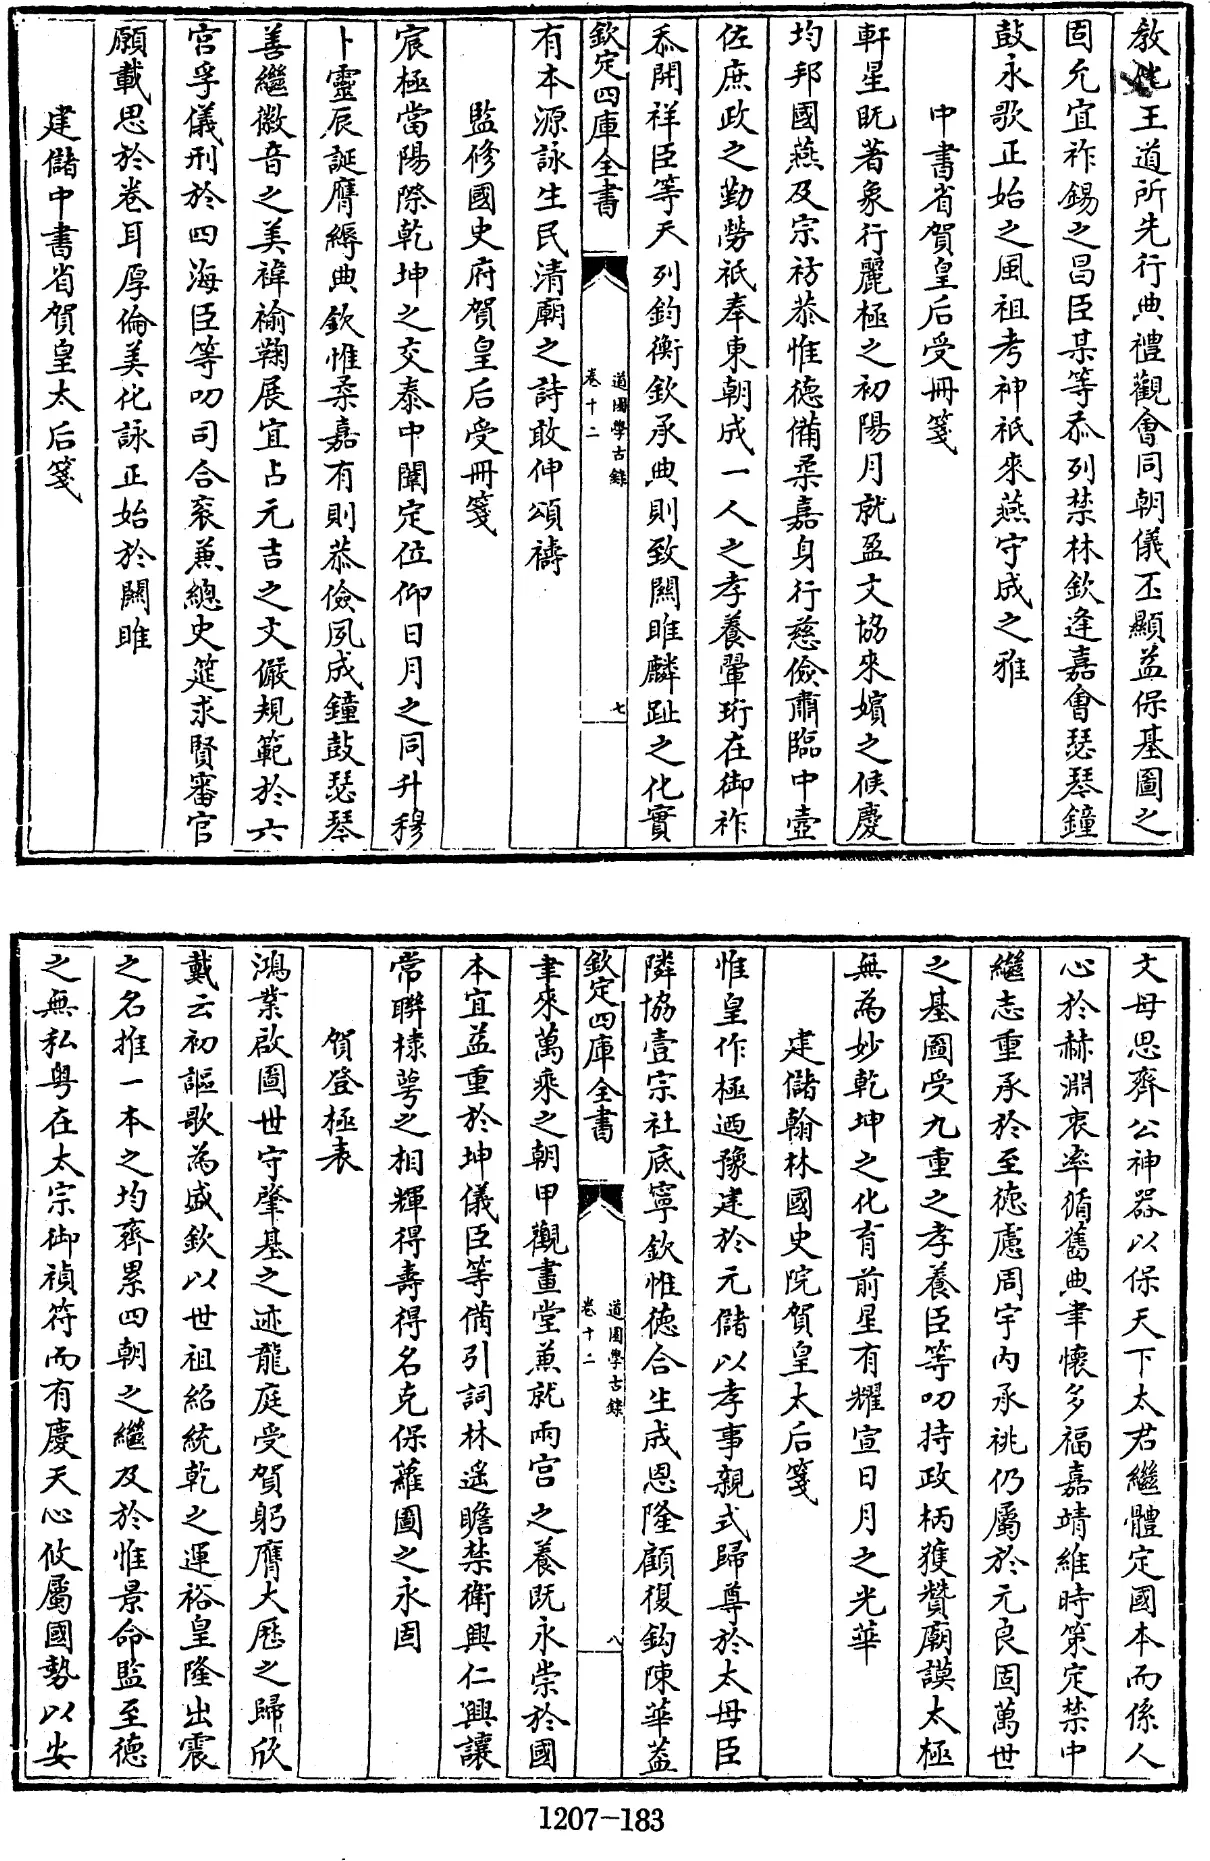 教徳王道所先行典禮觀會同朝儀丕顯益保基圖之
固允宜祚錫之昌臣某等忝列禁林欽逢嘉會瑟琴鐘
鼓永歌正始之風祖考神祇來燕守成之雅
中書省賀皇后受冊箋
軒星既著象行麗極之初陽月就盈文協來嬪之候慶
均邦國燕及宗祊恭惟徳備柔嘉身行慈儉肅臨中壼
佐庶政之勤勞祗奉東朝成一人之孝養翬珩在御祚
忝開祥臣等天列鈞衡欽承典則致關雎麟趾之化實
欽定四庫全書
道園學古録
卷十二
七
有本源詠生民清廟之詩敢伸頌禱
監修國史府賀皇后受冊箋
宸極當陽際乾坤之交泰中闈定位仰日月之同升穆
卜靈辰誕膺縟典欽惟柔嘉有則恭儉夙成鐘鼓瑟琴
善繼徽音之美褘褕鞠展宜占元吉之文儼規範於六
宫孚儀刑於四海臣等叨司合衮兼總史筵求賢審官
願載思於卷耳厚倫美化詠正始於關雎
建儲中書省賀皇太后箋
文母思齊公神器以保天下太君繼體定國本而係人
心於赫淵衷率循舊典聿懷多福嘉靖維時策定禁中
繼志重承於至徳慮周宇内承祧仍屬於元良固萬世
之基圖受九重之孝養臣等叨持政柄獲贊廟謨太極
無為妙乾坤之化育前星有耀宣日月之光華
建儲翰林國史院賀皇太后箋
惟皇作極迺豫建於元儲以孝事親式歸尊於太母臣
隣協壹宗社底寧欽惟徳合生成恩隆顧復鈎陳華葢
欽定四庫全書
道園學古録
卷十二
八
聿來萬乘之朝甲觀畫堂兼就兩宫之養既永崇於國
本宜益重於坤儀臣等備引詞林遙瞻禁衛興仁興讓
常聯棣萼之相輝得壽得名克保蘿圖之永固
賀登極表
鴻業啟圖世守肇基之迹龍庭受賀躬膺大厯之歸欣
戴云初謳歌為盛欽以世祖紹統乾之運裕皇隆出震
之名推一本之均齊累四朝之繼及於惟景命監至徳
之無私粤在太宗御禎符而有慶天心攸屬國勢以安
1207-183